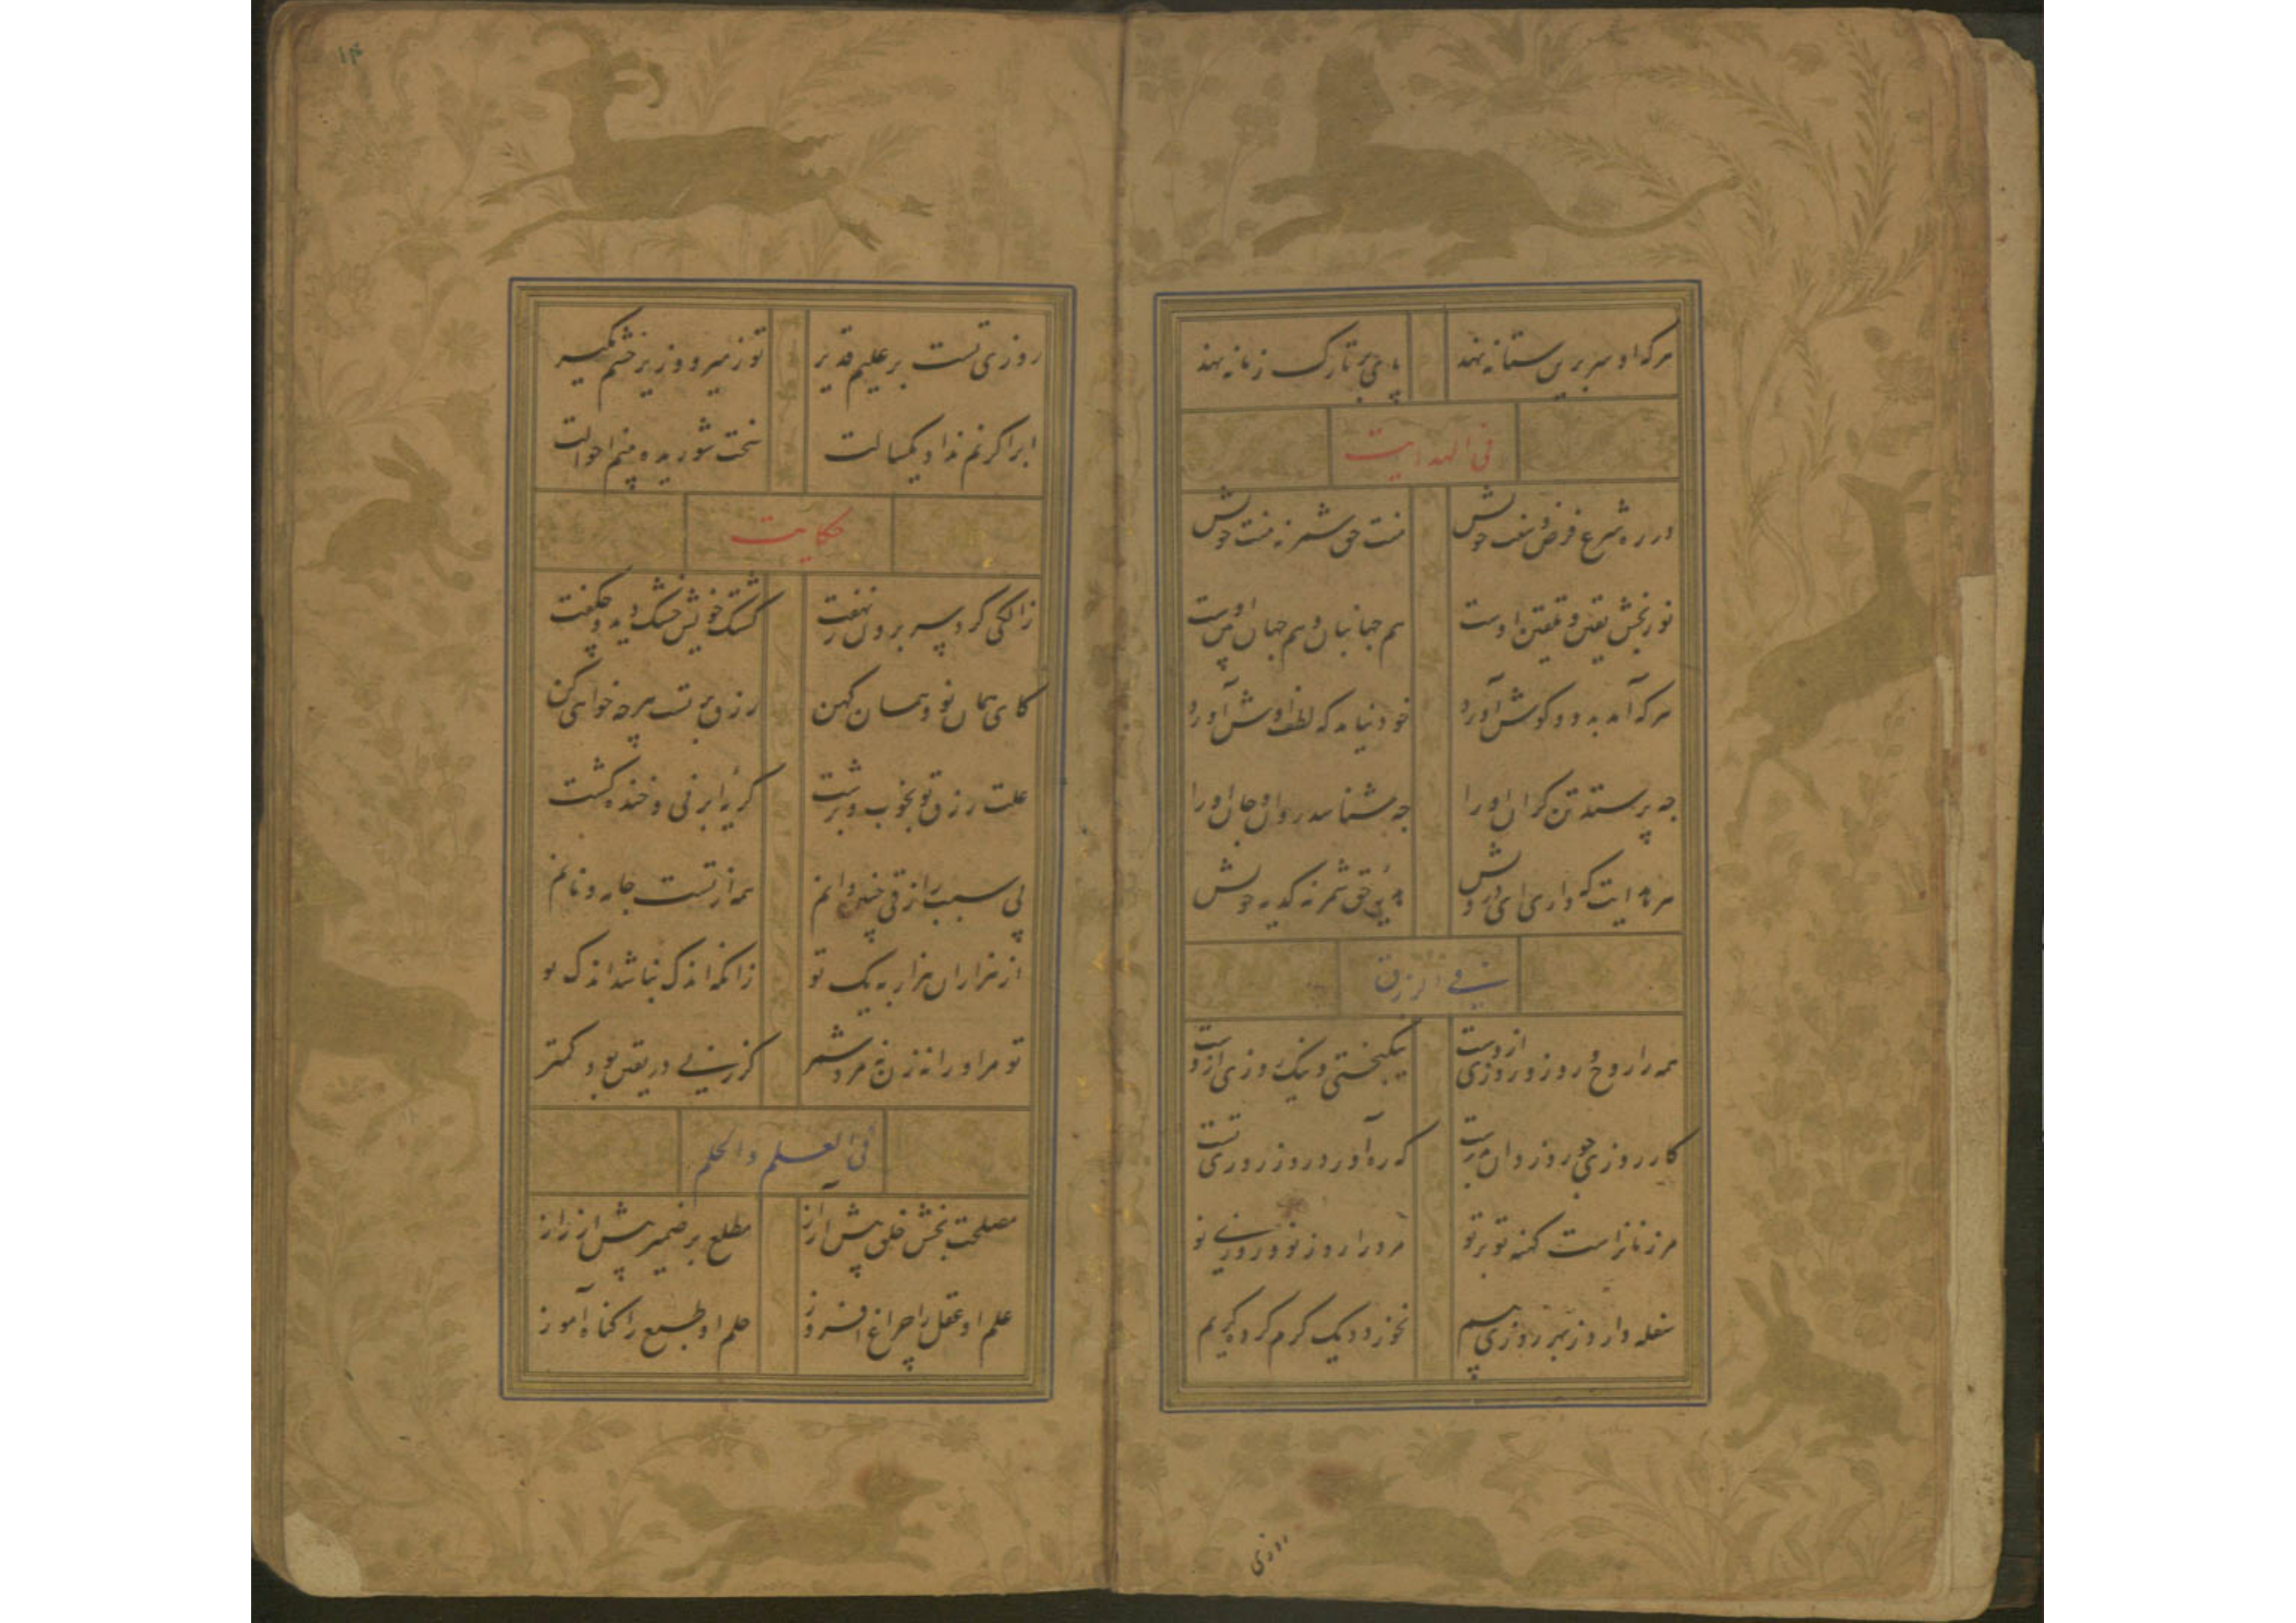 هر که او سر برین ستانه نهد پای بر تارک زمانه نهد
فی الهدایت
در ره شرع فرض و سنت خویش منت حق شمر نه منت خویش
نور بخش یقین و تلقین اوست هم جهانبان و هم جهان بین اوست
هر که آمد بدو و گوش آورد خود نیامد که لطف اوش آورد
چه پرستد تن گران او را چه شناسد روان و جان او را
هر هدایت که داری ای درویش هدیهٔ حق شمر نه کدیه خویش
فی الرزق
همه را روح و روز و روزی ازوست نیکبختی و نیک روزی ازوست
کار روزی چو روز دان بدرست که ره آورد روز روزی تست
هر زمانراست کهنه تو بر تو مرد را روز نو و روزی نو
سفله دارد ز بهر روزی بیم نخورد دیک گرم کرده کریم
روزی
۱۴
روزی تست بر علیم قدیر تو ز میر و وزیر خشم مگیر
ابر اگر نم نداد یکسالت سخت شوریده بینم احوالت
حکایت
زالکی کرد سر برون ز نهفت کشتک خویش خشک دید و بگفت
کای همان نو و همان کهن رزق بر تست هرچه خواهی کن
علت رزق تو بخوب و بزشت گریهٔ ابر نی و خنده کشت
بی سبب رازقی یقین دانم همه از تست جامه و نانم
از هزاران هزار به یک تو زانکه اندک نباشد اندک تو
تو مر او را نه زن نه مرد شمر کز زنی در یقین بود کمتر
فی العلم والحلم
مصلحت بخش خلق پیش از آز مطلع بر ضمیر پیش از راز
علم او عقل را چراغ افروز حلم او طبع را گناه آموز